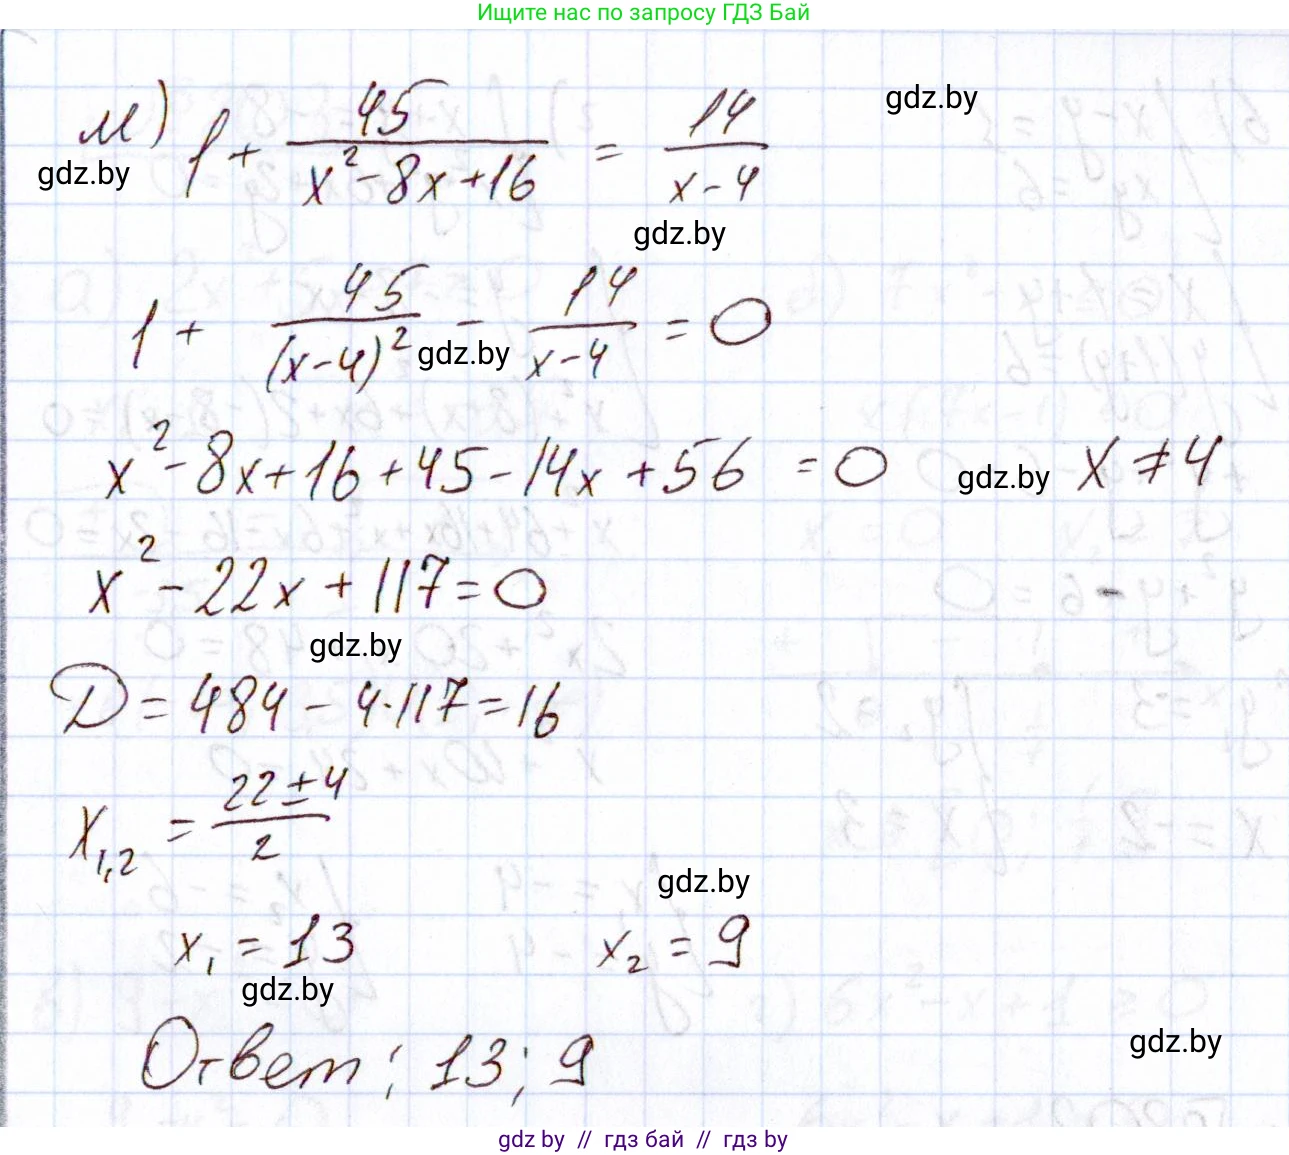 Ищите нас по запросу ГДЗ Бай
м) 1 + 45/(x² - 8x + 16) = 14/(x - 4)
gdz.by
gdz.by
gdz.by
1 + 45/(x - 4)² - 14/(x - 4) = 0
gdz.by
x² - 8x + 16 + 45 - 14x + 56 = 0 x ≠ 4
gdz.by
x² - 22x + 117 = 0
gdz.by
D = 484 - 4·117 = 16
x₁,₂ = (22 ± 4)/2
gdz.by
x₁ = 13 x₂ = 9
gdz.by
Ответ: 13; 9
gdz.by
gdz by // гдз бай // гдз by